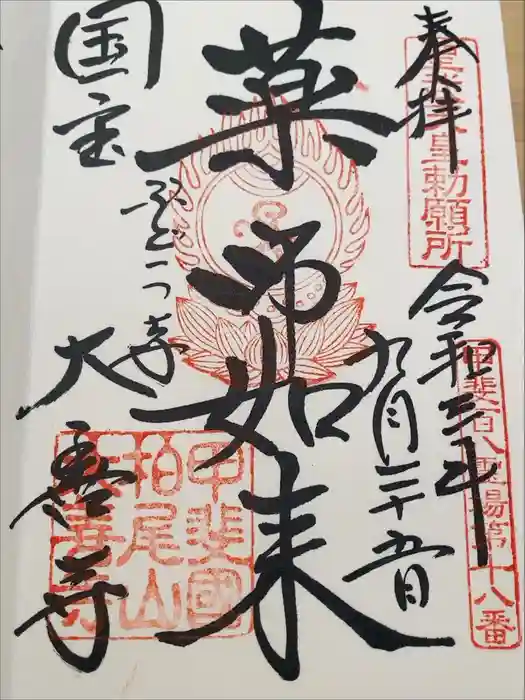 奉拝
聖武天皇勅願所
令和三年
九月二十五日
甲斐百八霊場第十八番
薬師如来
国宝
ぶどう寺
大善寺
甲斐國
柏尾山
大善寺